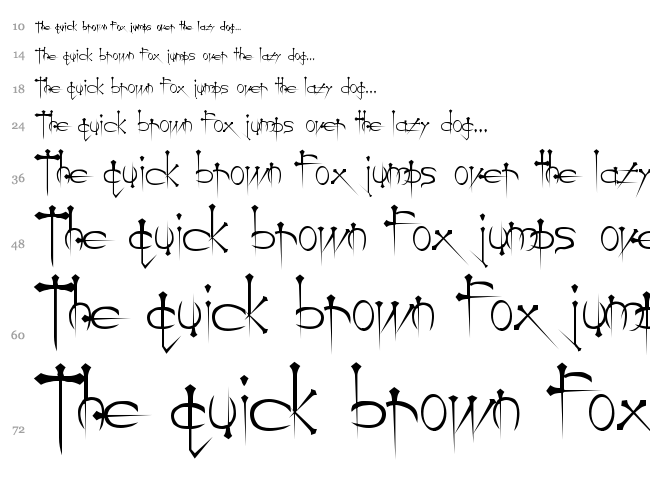 10 The quick brown fox jumps over the lazy dog...
14 The quick brown fox jumps over the lazy dog...
18 The quick brown fox jumps over the lazy dog...
24 The quick brown fox jumps over the lazy dog...
36 The quick brown fox jumps over the lazy
48 The quick brown fox jumps ove
60 The quick brown fox jump
72 The quick brown fox